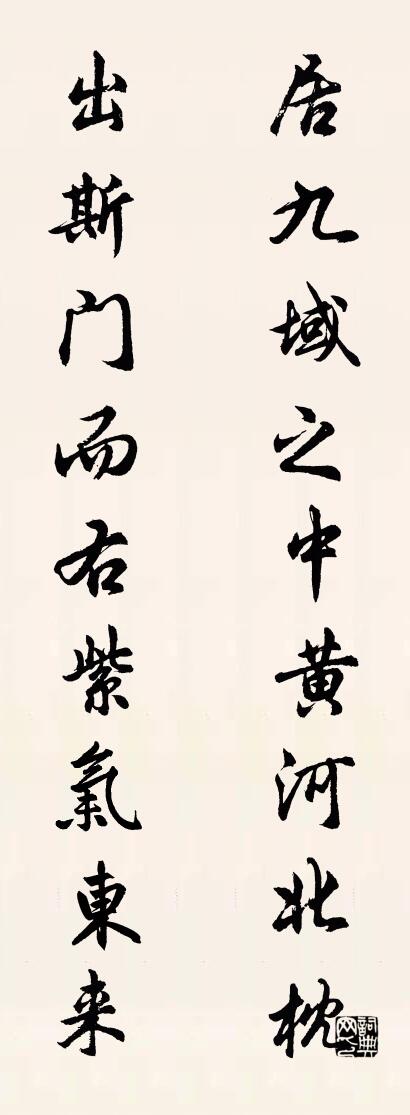 居九域之中黄河北枕
出斯门而右紫氣東来
詞典网